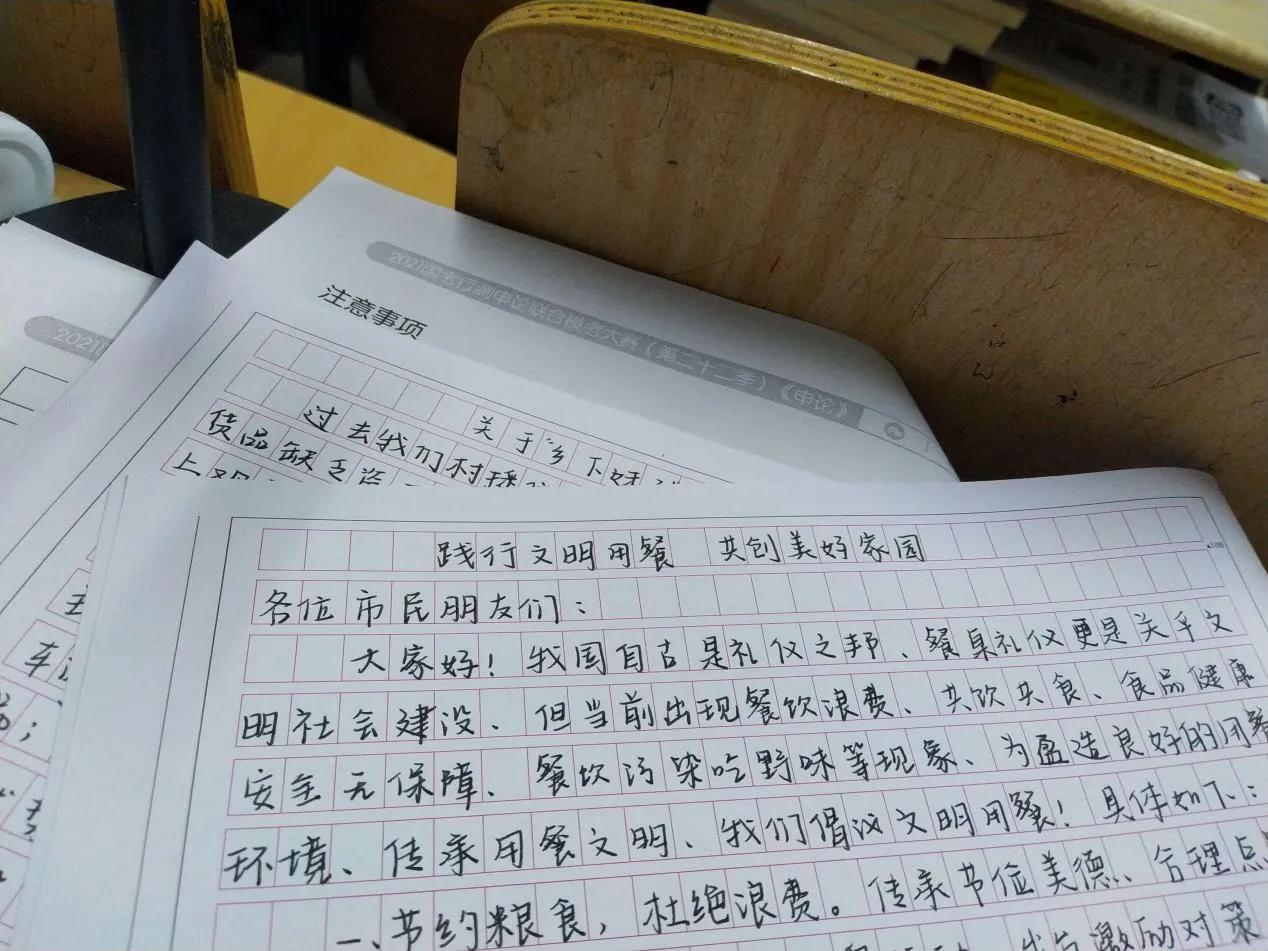 2021国考行测申论联合模考大赛（第二十二季）《申论》
注意事项
2021
关于"乡下
过去我们村
货品缺乏资
上
车
践行文明用餐 共创美好家园
各位市民朋友们：
大家好！我国自古是礼仪之邦、餐桌礼仪更是关乎文
明社会建设、但当前出现餐饮浪费、共饮共食、食品健康
安全无保障、餐饮污染吃野味等现象、为盈造良好的用餐
环境、传承用餐文明、我们倡议文明用餐！具体如下：
一、节约粮食，杜绝浪费。传承节俭美德、合理点
励对策